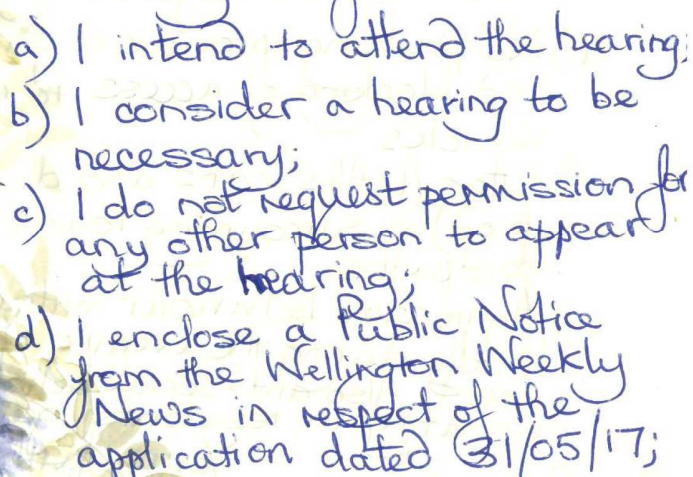 a) I intend to attend the hearing;
b) I consider a hearing to be
necessary;
c) I do not request permission for
any other person to appear
at the hearing;
d) I enclose a Public Notice
from the Wellington Weekly
News in respect of the
application dated 31/05/17;